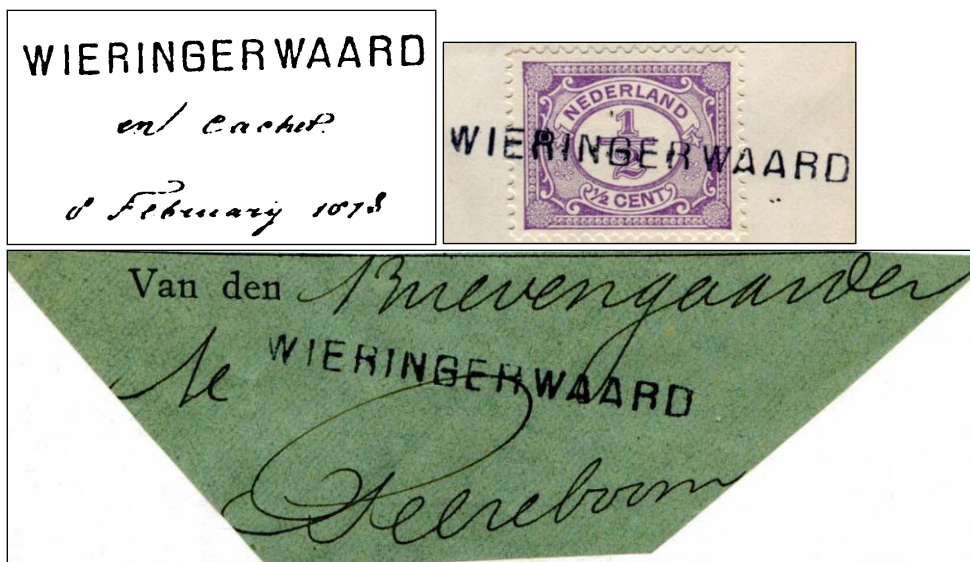 WIERINGERWAARD
en Cachet.
8 February 1878
NEDERLAND
1/2
WIERINGERWAARD
1/2 CENT
Van den Brievengaarder
te WIERINGERWAARD
Peereboom